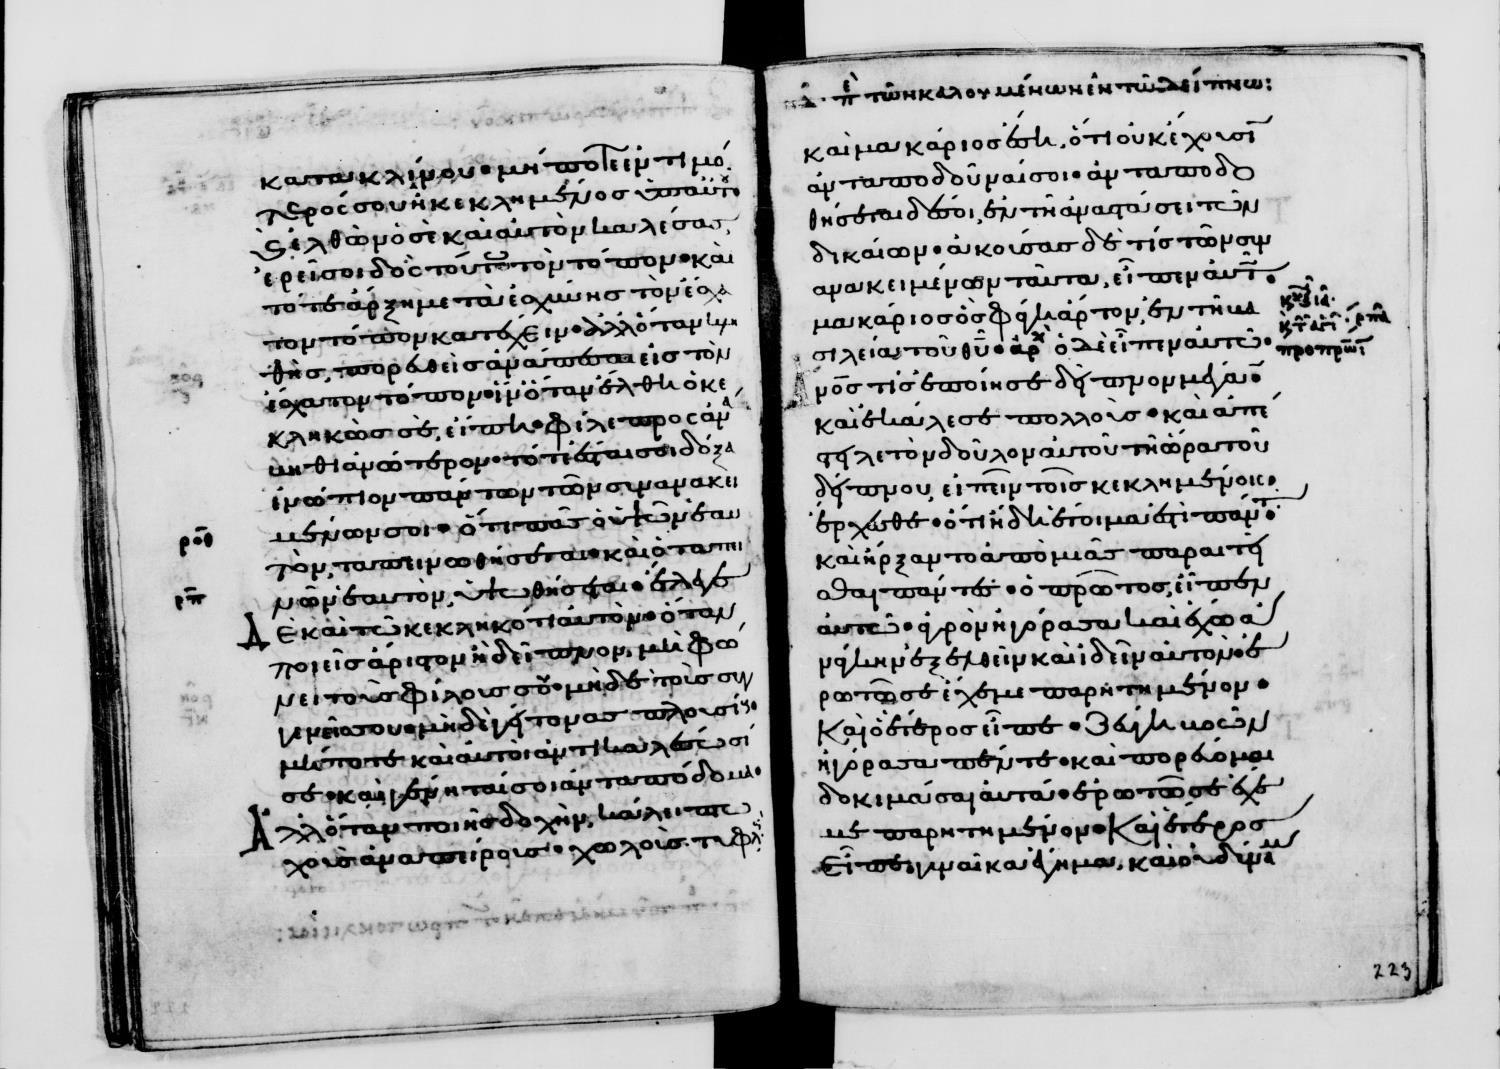 κατακλίνου· μήποτε ἐντιμό
τερός σου ἦ κεκλημένος ὑπ' αὐτοῦ·
ἐλθὼν ὁ σὲ καὶ αὐτὸν καλέσας,
ἐρεῖ σοι δὸς τούτω τὸν τόπον· καὶ
τότε ἄρξη μετὰ ἐσχύνης τὸν ἔσχα
τον τόπον κατέχειν· ἀλλ' ὅταν κλη
θῆς, πορευθεὶς ἀνάπεσαι εἰς τὸν
ἔσχατον τόπον· ἵν' ὅταν ἔλθη ὁ κε
κληκώς σε, εἴπη· φίλε προσανά
βηθι ἀνώτερον· τότε ἔσται σοι δόξα
ἐνώπιον πάντων τῶν συνανακει
μένων σοι· ὅτι πᾶς ὁ ὑψῶν ἑαυ
τὸν, ταπεινωθήσεται· καὶ ὁ ταπει
νῶν ἑαυτὸν, ὑψωθήσεται· ἔλεγε
δὲ καὶ τῶ κεκληκότι αὐτὸν· ὅταν
ποιεῖς ἄριστον ἢ δεῖπνον, μὴ φώ
νει τοὺς φίλους σου· μηδὲ τοὺς συγ
γενεῖς σου· μηδὲ γείτονας πλουσίους·
μήποτε καὶ αὐτοὶ ἀντικαλέσωσί
σε· καὶ γένηταί σοι ἀνταπόδομα·
Ἀλλ' ὅταν ποιῆς δοχὴν, κάλει πτω
χοὺς ἀναπείρους· χωλοὺς· τυφλούς·
ροθ
ρπ
περὶ τῶν καλουμένων ἐν τῶ δείπνω:
καὶ μακάριος ἔση, ὅτι οὐκ ἔχουσιν
ἀνταποδοῦναί σοι· ἀνταποδο
θήσεται δέ σοι, ἐν τῆ ἀναστάσει τῶν
δικαίων· ἀκούσας δέ τις τῶν συν
ανακειμένων ταῦτα, εἶπεν αὐτῶ·
μακάριος ὃς φάγη ἄρτον, ἐν τῆ βα
σιλεία τοῦ θυ· ἀρχ ὁ δὲ εἶπεν αὐτῶ·
ανος τις ἐποίησε δεῖπνον μέγα·
καὶ ἐκάλεσε πολλοὺς· καὶ ἀπέ
στειλε τὸν δοῦλον αὐτοῦ τῆ ὥρα τοῦ
δείπνου, εἰπεῖν τοῖς κεκλημένοις·
ἔρχεσθε· ὅτι ἤδη ἕτοιμά ἐστι πάντα·
καὶ ἤρξαντο ἀπὸ μιᾶς παραιτεῖ
σθαι πάντες· ὁ πρῶτος, εἶπεν
αὐτῶ· ἀγρὸν ἠγόρασα καὶ ἔχω ἀ
νάγκην ἐξελθεῖν καὶ ἰδεῖν αὐτὸν· ἐ
ρωτῶ σε ἔχε με παρητημένον·
Καὶ ἕτερος εἶπε· Ζεύγη βοῶν
ἠγόρασα πέντε· καὶ πορεύομαι
δοκιμάσαι αὐτά· ἐρωτῶ σε ἔχε
με παρητημένον· Καὶ ἕτερος
εἶπε, γυναῖκα ἔγημα, καὶ οὐ δύναμαι
ρπα
223